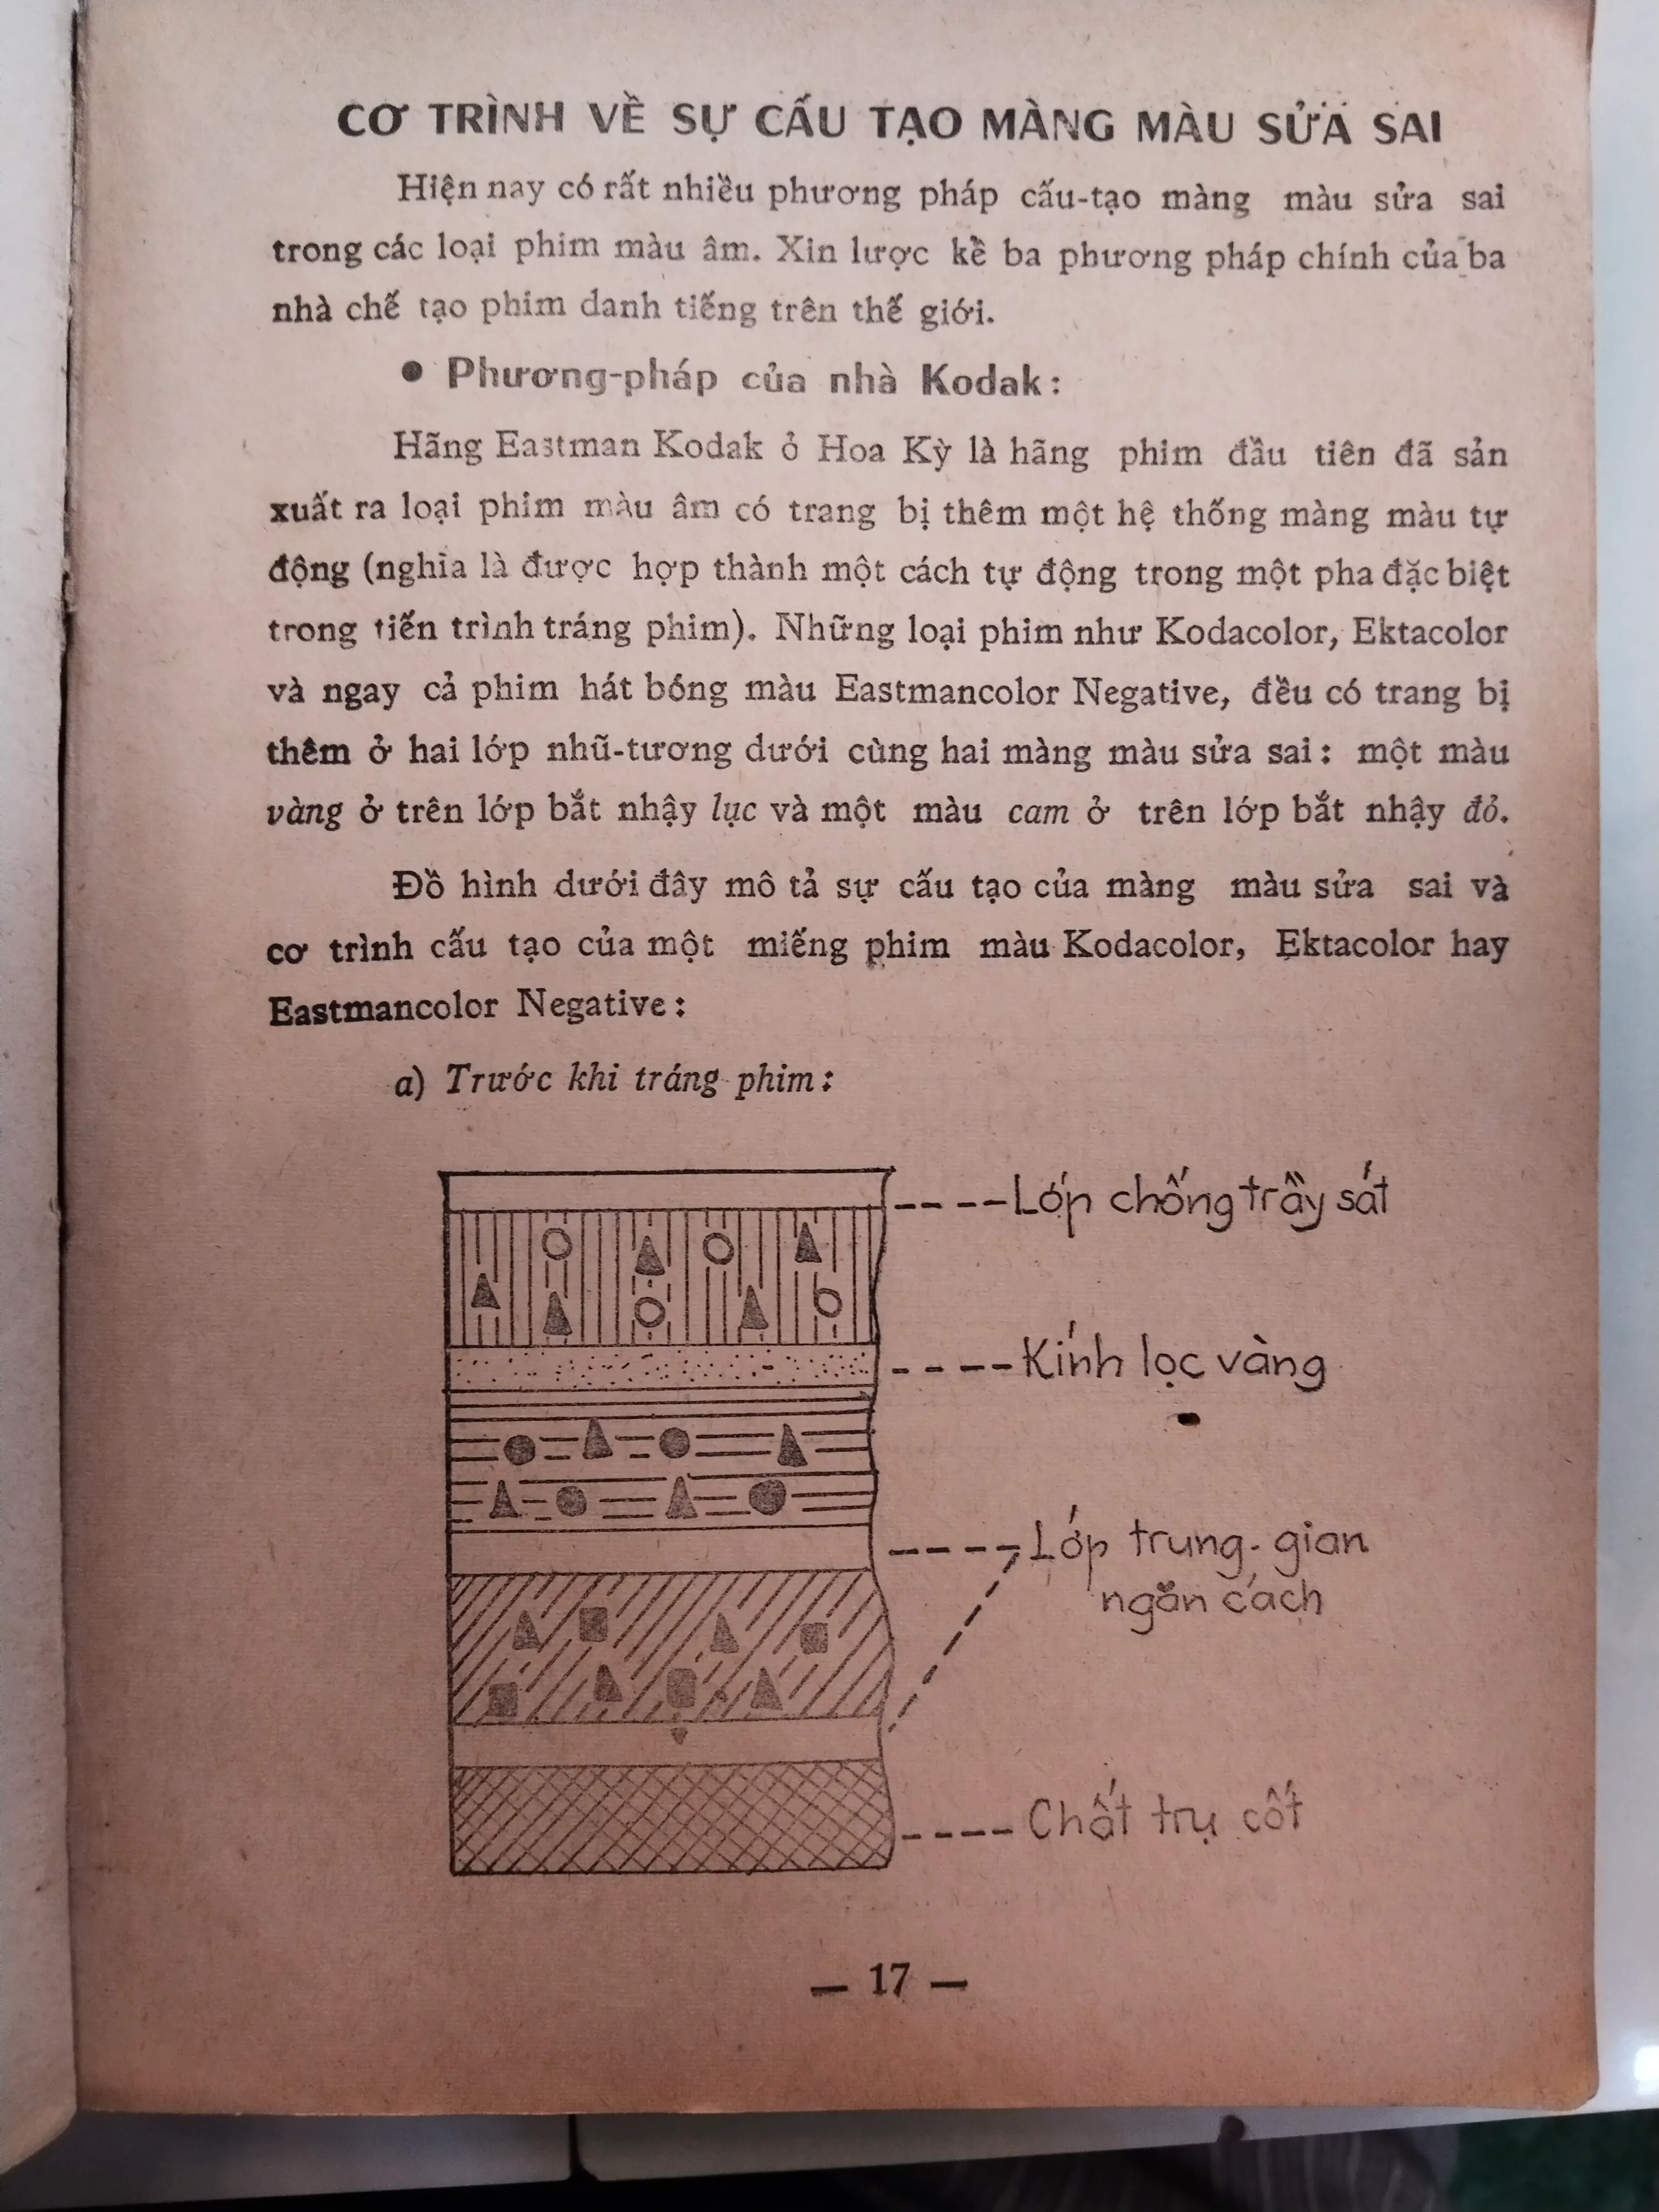 CƠ TRÌNH VỀ SỰ CẤU TẠO MÀNG MÀU SỬA SAI
Hiện nay có rất nhiều phương pháp cấu-tạo màng màu sửa sai
trong các loại phim màu âm. Xin lược kề ba phương pháp chính của ba
nhà chế tạo phim danh tiếng trên thế giới.
● Phương-pháp của nhà Kodak:
Hãng Eastman Kodak ỏ Hoa Kỳ là hãng phim đầu tiên đã sản
xuất ra loại phim màu âm có trang bị thêm một hệ thống màng màu tự
động (nghia là được hợp thành một cách tự động trong một pha đặc biệt
trong tiến trình tráng phim). Những loại phim như Kodacolor, Ektacolor
và ngay cả phim hát bóng màu Eastmancolor Negative, đều có trang bị
thêm ở hai lớp nhũ-tương dưới cùng hai màng màu sửa sai: một màu
vàng ở trên lớp bắt nhậy lục và một màu cam ở trên lớp bắt nhậy đỏ.
Đồ hình dưới đây mô tả sự cấu tạo của màng màu sửa sai và
cơ trình cấu tạo của một miếng phim màu Kodacolor, Ektacolor hay
Eastmancolor Negative:
a) Trước khi tráng phim:
Lớp chống trầy sát
Kính lọc vàng
Lớp trung-gian
ngăn cách
Chất trụ cốt
— 17 —